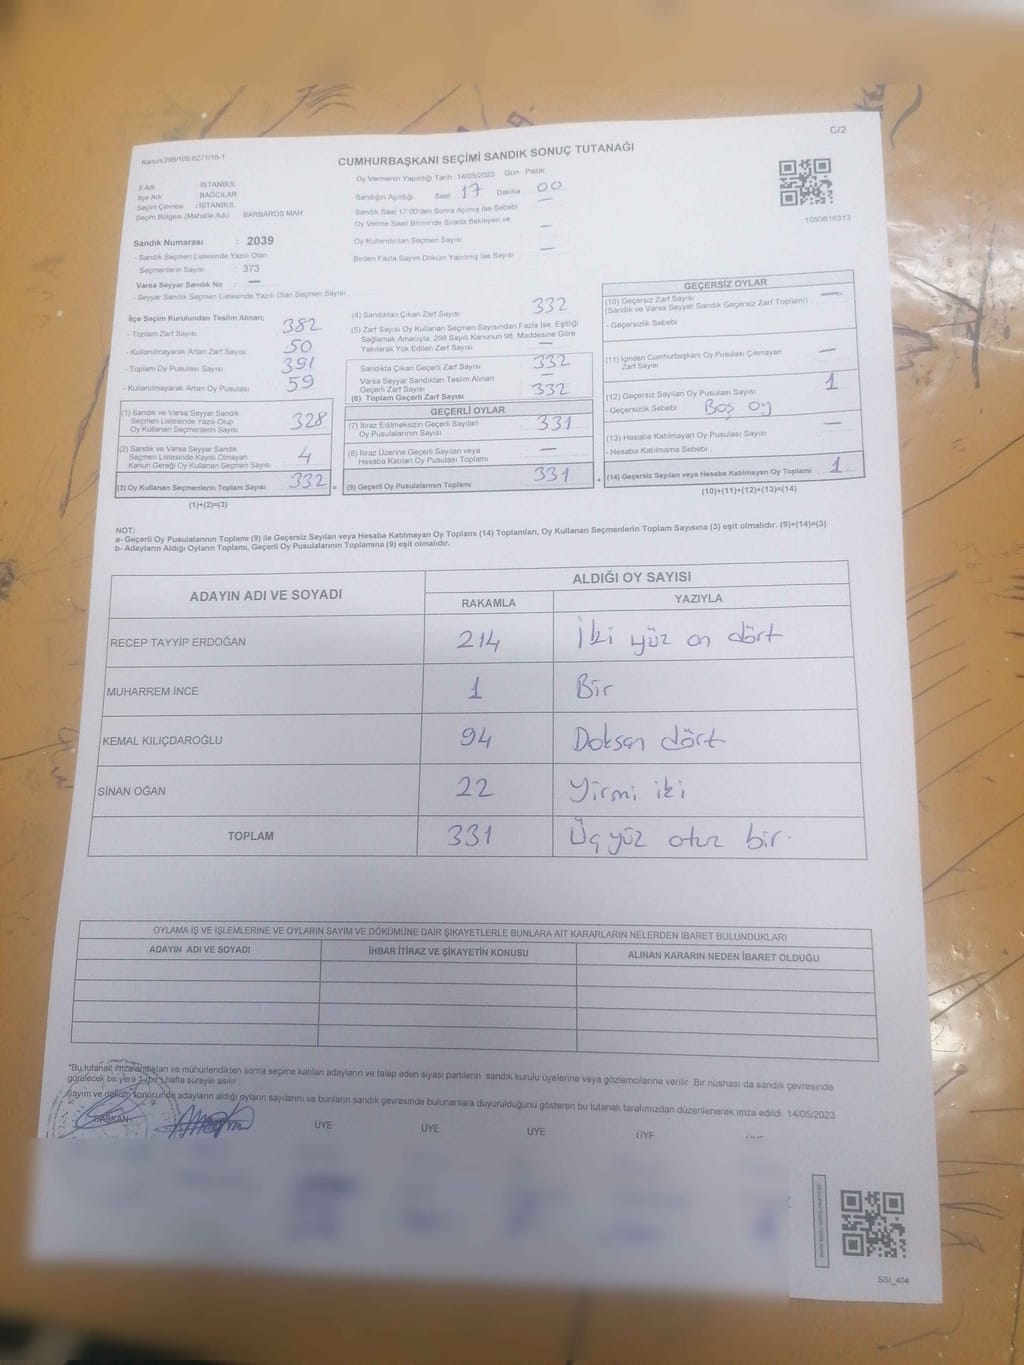 C/2
Kanun:298/105;6271/18-1
CUMHURBAŞKANI SEÇİMİ SANDIK SONUÇ TUTANAĞI
İl Adı : İSTANBUL
İlçe Adı : BAĞCILAR
Seçim Çevresi : İSTANBUL
Seçim Bölgesi (Mahalle Adı) : BARBAROS MAH
Sandık Numarası : 2039
- Sandık Seçmen Listesinde Yazılı Olan
Seçmenlerin Sayısı : 373
Varsa Seyyar Sandık No : —
- Seyyar Sandık Seçmen Listesinde Yazılı Olan Seçmen Sayısı
Oy Vermenin Yapıldığı Tarih 14/05/2023 Gün Pazar
Sandığın Açıldığı Saat 17 Dakika 00
Sandık Saat 17:00'den Sonra Açımış İse Sebebi —
Oy Verme Saati Bitiminde Sırada Bekleyen ve
Oy Kullandırılan Seçmen Sayısı —
Birden Fazla Sayım Döküm Yapılmış İse Sayısı —
1093616313
İlçe Seçim Kurulundan Teslim Alınan;
- Toplam Zarf Sayısı 382
- Kullanılmayarak Artan Zarf Sayısı 50
- Toplam Oy Pusulası Sayısı 391
- Kullanılmayarak Artan Oy Pusulası 59
(1) Sandık ve Varsa Seyyar Sandık
Seçmen Listesinde Yazılı Olup
Oy Kullanan Seçmenlerin Sayısı 328
(2) Sandık ve Varsa Seyyar Sandık
Seçmen Listesinde Kayıtlı Olmayan
Kanun Gereği Oy Kullanan Seçmen Sayısı 4
(3) Oy Kullanan Seçmenlerin Toplam Sayısı 332 =
(1)+(2)=(3)
(4) Sandıktan Çıkan Zarf Sayısı 332
(5) Zarf Sayısı Oy Kullanan Seçmen Sayısından Fazla İse, Eşitliği
Sağlamak Amacıyla, 298 Sayılı Kanunun 98. Maddesine Göre
Yakılarak Yok Edilen Zarf Sayısı —
Sandıkta Çıkan Geçerli Zarf Sayısı 332
Varsa Seyyar Sandıktan Teslim Alınan
Geçerli Zarf Sayısı —
(6) Toplam Geçerli Zarf Sayısı 332
GEÇERLİ OYLAR
(7) İtiraz Edilmeksizin Geçerli Sayılan
Oy Pusulalarının Sayısı 331
(8) İtiraz Üzerine Geçerli Sayılan veya
Hesaba Katılan Oy Pusulası Toplamı —
(9) Geçerli Oy Pusulalarının Toplamı 331 +
GEÇERSİZ OYLAR
(10) Geçersiz Zarf Sayısı —
(Sandık ve Varsa Seyyar Sandık Geçersiz Zarf Toplamı)
- Geçersizlik Sebebi
(11) İçinden Cumhurbaşkanı Oy Pusulası Çıkmayan
Zarf Sayısı —
(12) Geçersiz Sayılan Oy Pusulası Sayısı 1
- Geçersizlik Sebebi : Boş oy
(13) Hesaba Katılmayan Oy Pusulası Sayısı —
- Hesaba Katılmama Sebebi :
(14) Geçersiz Sayılan veya Hesaba Katılmayan Oy Toplamı 1
(10)+(11)+(12)+(13)=(14)
NOT:
a- Geçerli Oy Pusulalarının Toplamı (9) ile Geçersiz Sayılan veya Hesaba Katılmayan Oy Toplamı (14) Toplamları, Oy Kullanan Seçmenlerin Toplam Sayısına (3) eşit olmalıdır. (9)+(14)=(3)
b- Adayların Aldığı Oyların Toplamı, Geçerli Oy Pusulalarının Toplamına (9) eşit olmalıdır.
ADAYIN ADI VE SOYADI
ALDIĞI OY SAYISI
RAKAMLA YAZIYLA
RECEP TAYYİP ERDOĞAN 214 İki yüz on dört
MUHARREM İNCE 1 Bir
KEMAL KILIÇDAROĞLU 94 Doksan dört
SİNAN OĞAN 22 Yirmi iki
TOPLAM 331 Üç yüz otuz bir.
OYLAMA İŞ VE İŞLEMLERİNE VE OYLARIN SAYIM VE DÖKÜMÜNE DAİR ŞİKAYETLERLE BUNLARA AİT KARARLARIN NELERDEN İBARET BULUNDUKLARI
ADAYIN ADI VE SOYADI İHBAR İTİRAZ VE ŞİKAYETİN KONUSU ALINAN KARARIN NEDEN İBARET OLDUĞU
*Bu tutanak imzalandıktan ve mühürlendikten sonra seçime katılan adayların ve talep eden siyasi partilerin sandık kurulu üyelerine veya gözlemcilerine verilir. Bir nüshası da sandık çevresinde
görülecek bir yere 1 (bir) hafta süreyle asılır.
*Sayım ve döküm sonucunda adayların aldığı oyların sayılarını ve bunların sandık çevresinde bulunanlara duyurulduğunu gösteren bu tutanak tarafımızdan düzenlenerek imza edildi. 14/05/2023
BAŞKAN ÜYE ÜYE ÜYE ÜYE
SSİ_404